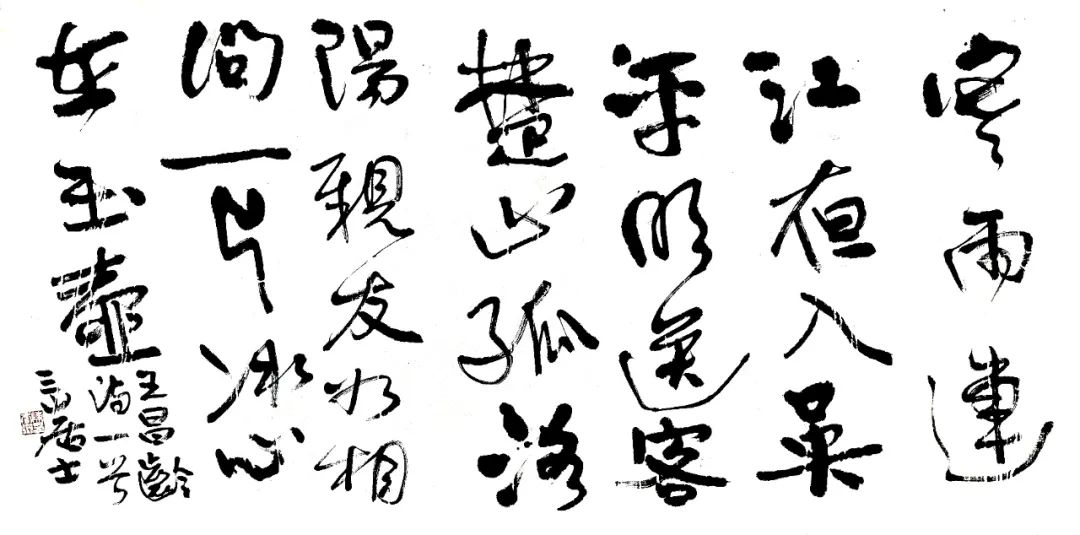 寒雨連
江夜入吳
平明送客
楚山孤洛
陽親友如相
問一片冰心
在玉壺
王昌齡
詩一首
居士